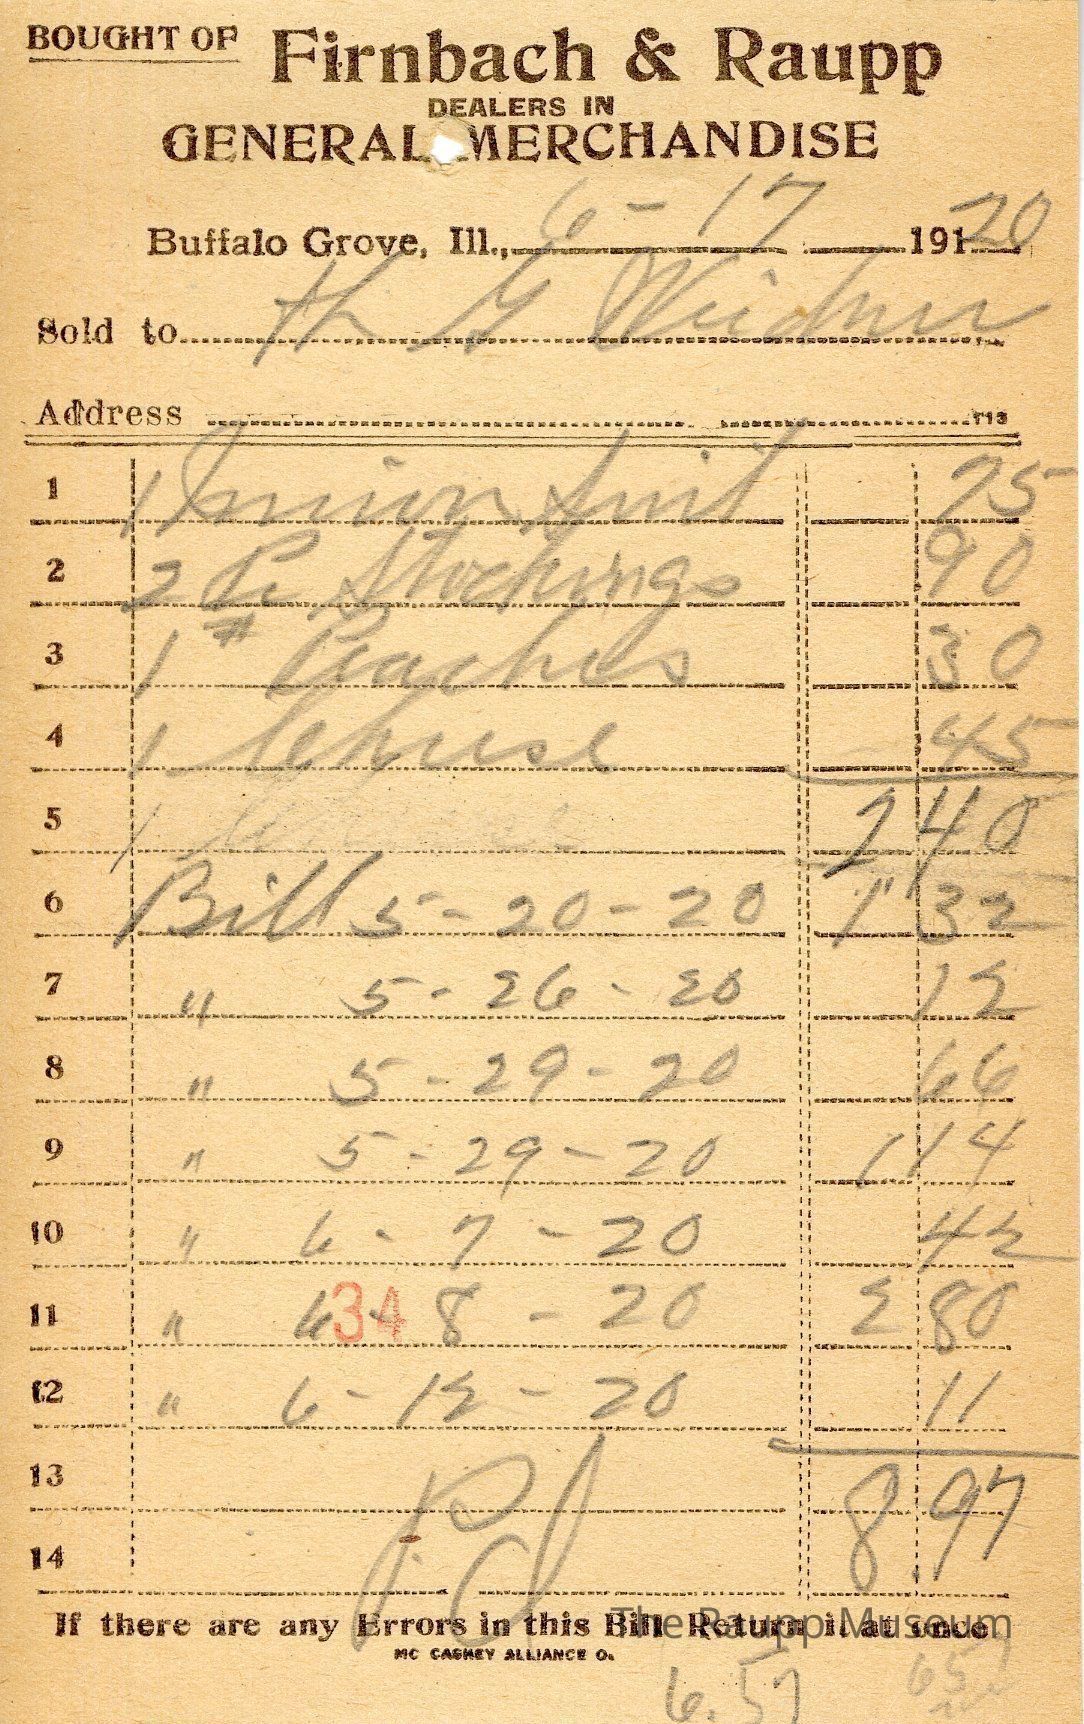 BOUGHT OF Firnbach & Raupp
DEALERS IN
GENERAL MERCHANDISE
Buffalo Grove, Ill., 6-17 191 20
Sold to H G Weidner
Address T13
1 1 Union Suit 75
2 2 Pr Stockings 90
3 1 # Peaches 30
4 1 Cheese 45
5 1 2 40
6 Bill 5-20-20 1 32
7 " 5-26-20 12
8 " 5-29-20 66
9 " 5-29-20 1 14
10 " 6-7-20 42
11 " 6-8-20 2 80
34
12 " 6-12-20 11
13 Pd 8.97
14
If there are any Errors in this Bill Return it at once
The Raupp Museum
MC CASKEY ALLIANCE O.
6.57